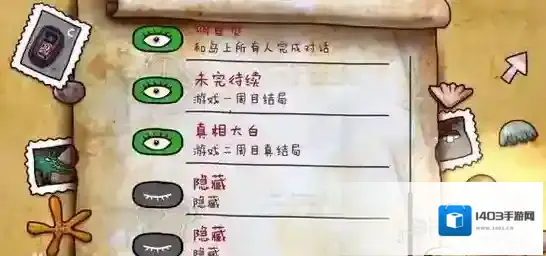 和岛上所有人完成对话
未完待续
游戏一周目结局
真相大白
游戏二周目真结局
隐藏
隐藏
隐藏
隐藏
1403手游网